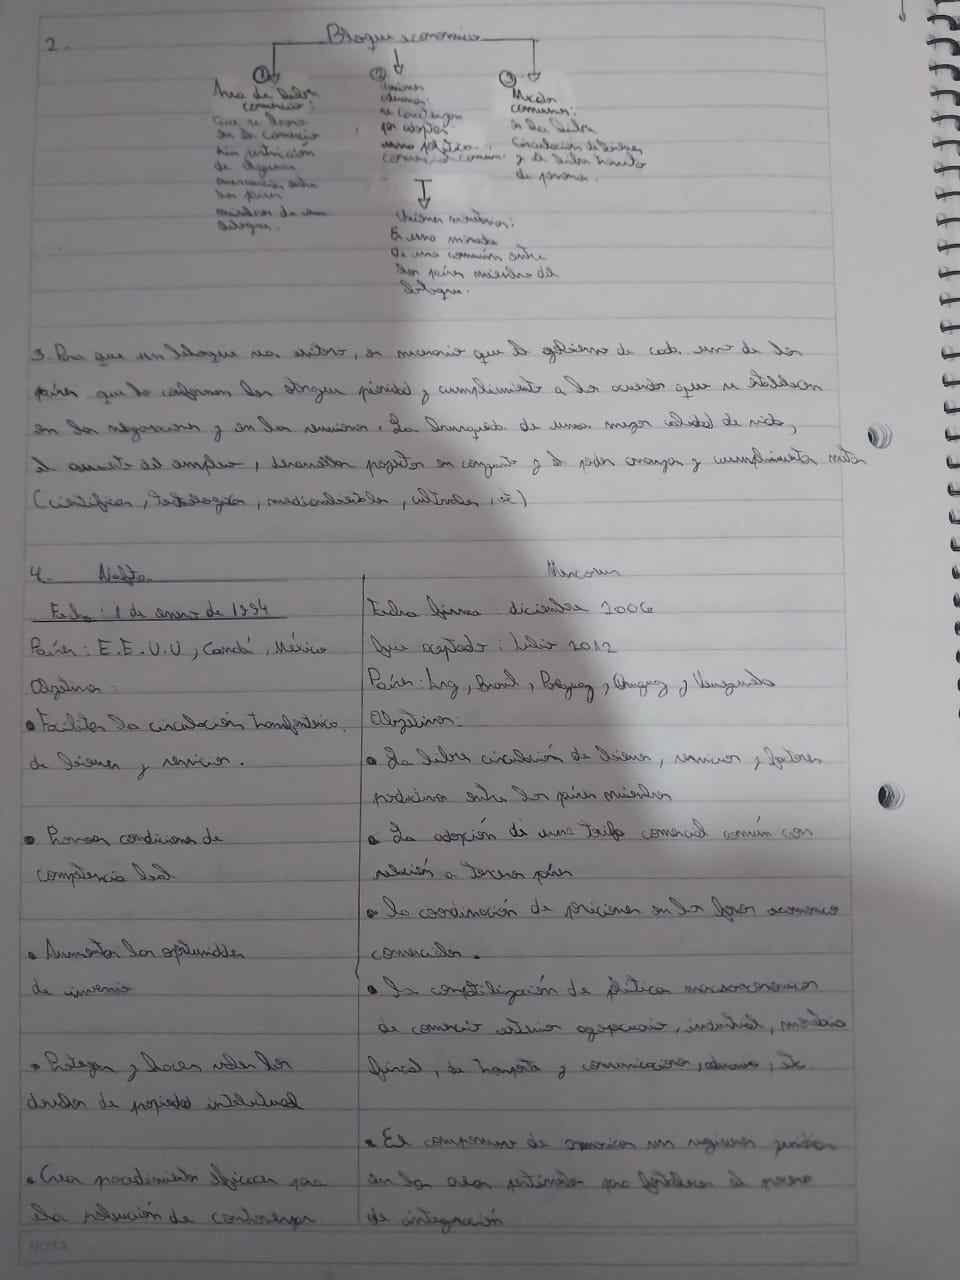 2.
Bloque economico
①
Area de libre
comercio:
que se basa
en la comercio
sin restricción
de algunas
mercancias entre
los paises
miembros de un
bloque.
②
Uniones
aduanas:
se constituyen
por adoptar
una política
comercial comun.
③
Mercados
comunes:
es la libre
circulación de bienes
y de libre transito
de personas.
Uniones monetarias:
Es una moneda
de una comunión entre
los países miembro del
bloque.
3. Para que un bloque sea exitoso, es necesario que el gobierno de cada uno de los
países que lo conforman los otorgue prioridad y cumplimiento a los acuerdos que se establecen
en las negociaciones y en las reuniones. La busqueda de una mejor calidad de vida,
el aumento del empleo, desarrollar proyectos en conjunto y el poder avanzar y cumplimentar metas
(cientificas, tecnologicas, medioambientales, culturales, etc)
4. Nafta
Fecha: 1 de enero de 1994
Países: E.E.U.U, Canadá, México
Objetivos:
• Facilitar la circulación transfronterizo
de bienes y servicios.
• Promover condiciones de
competencia leal.
• Aumentar las oportunidades
de inversion
• Proteger y hacer valer los
derechos de propiedad intelectual
• Crear procedimientos eficaces para
la solución de controversias
Mercosur
Fecha firma diciembre 2006
fue aceptado: Julio 2012
Países: Arg, Brasil, Paraguay, Uruguay y Venezuela
Objetivos:
• La libre circulación de bienes, servicios y factores
productivos entre los países miembros
• La adopción de una tarifa comercial común con
relación a terceros países
• La coordinación de posiciones en los foros economico
comerciales.
• La compatilización de políticas macroeconomicas
de comercio exterior agropecuario, industrial, monetaria
fiscal, de transporte y comunicaciones, aduanas, etc
• El compromiso de armonizar sus regimenes juridicos
en las areas pertinentes para fortalecer el proceso
de integración